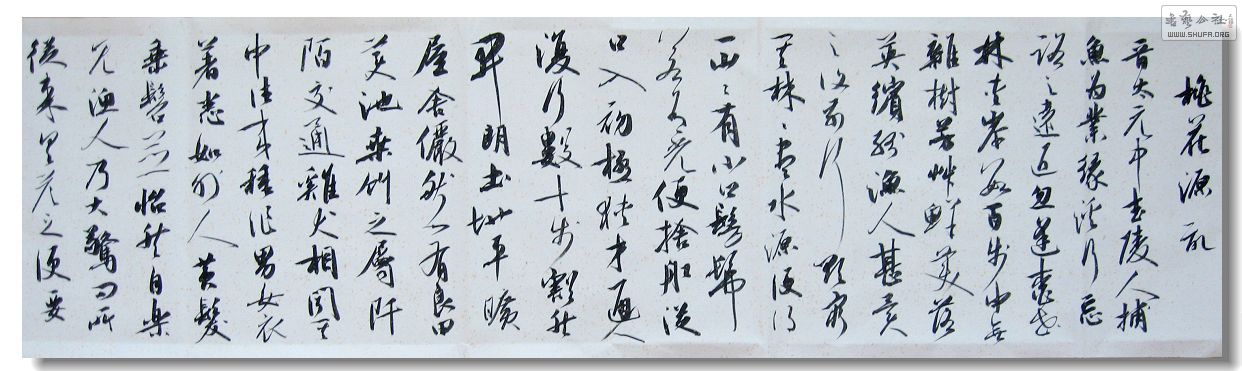 桃花源記
晋太元中武陵人捕
魚为業缘溪行忘
路之遠近忽逢桃花
林夹岸数百步中無
雜樹芳草鮮美落
英繽紛漁人甚異
之復前行欲窮
其林林盡水源便得
一山山有小口髣髴
若有光便捨船從
口入初極狹才通人
復行數十步豁然
開朗土地平曠
屋舍儼然有良田
美池桑竹之屬阡
陌交通雞犬相聞其
中往来種作男女衣
著悉如外人黄髮
垂髫並怡然自樂
見漁人乃大驚問所
從来具答之便要
書藝公社
WWW.SHUFA.ORG